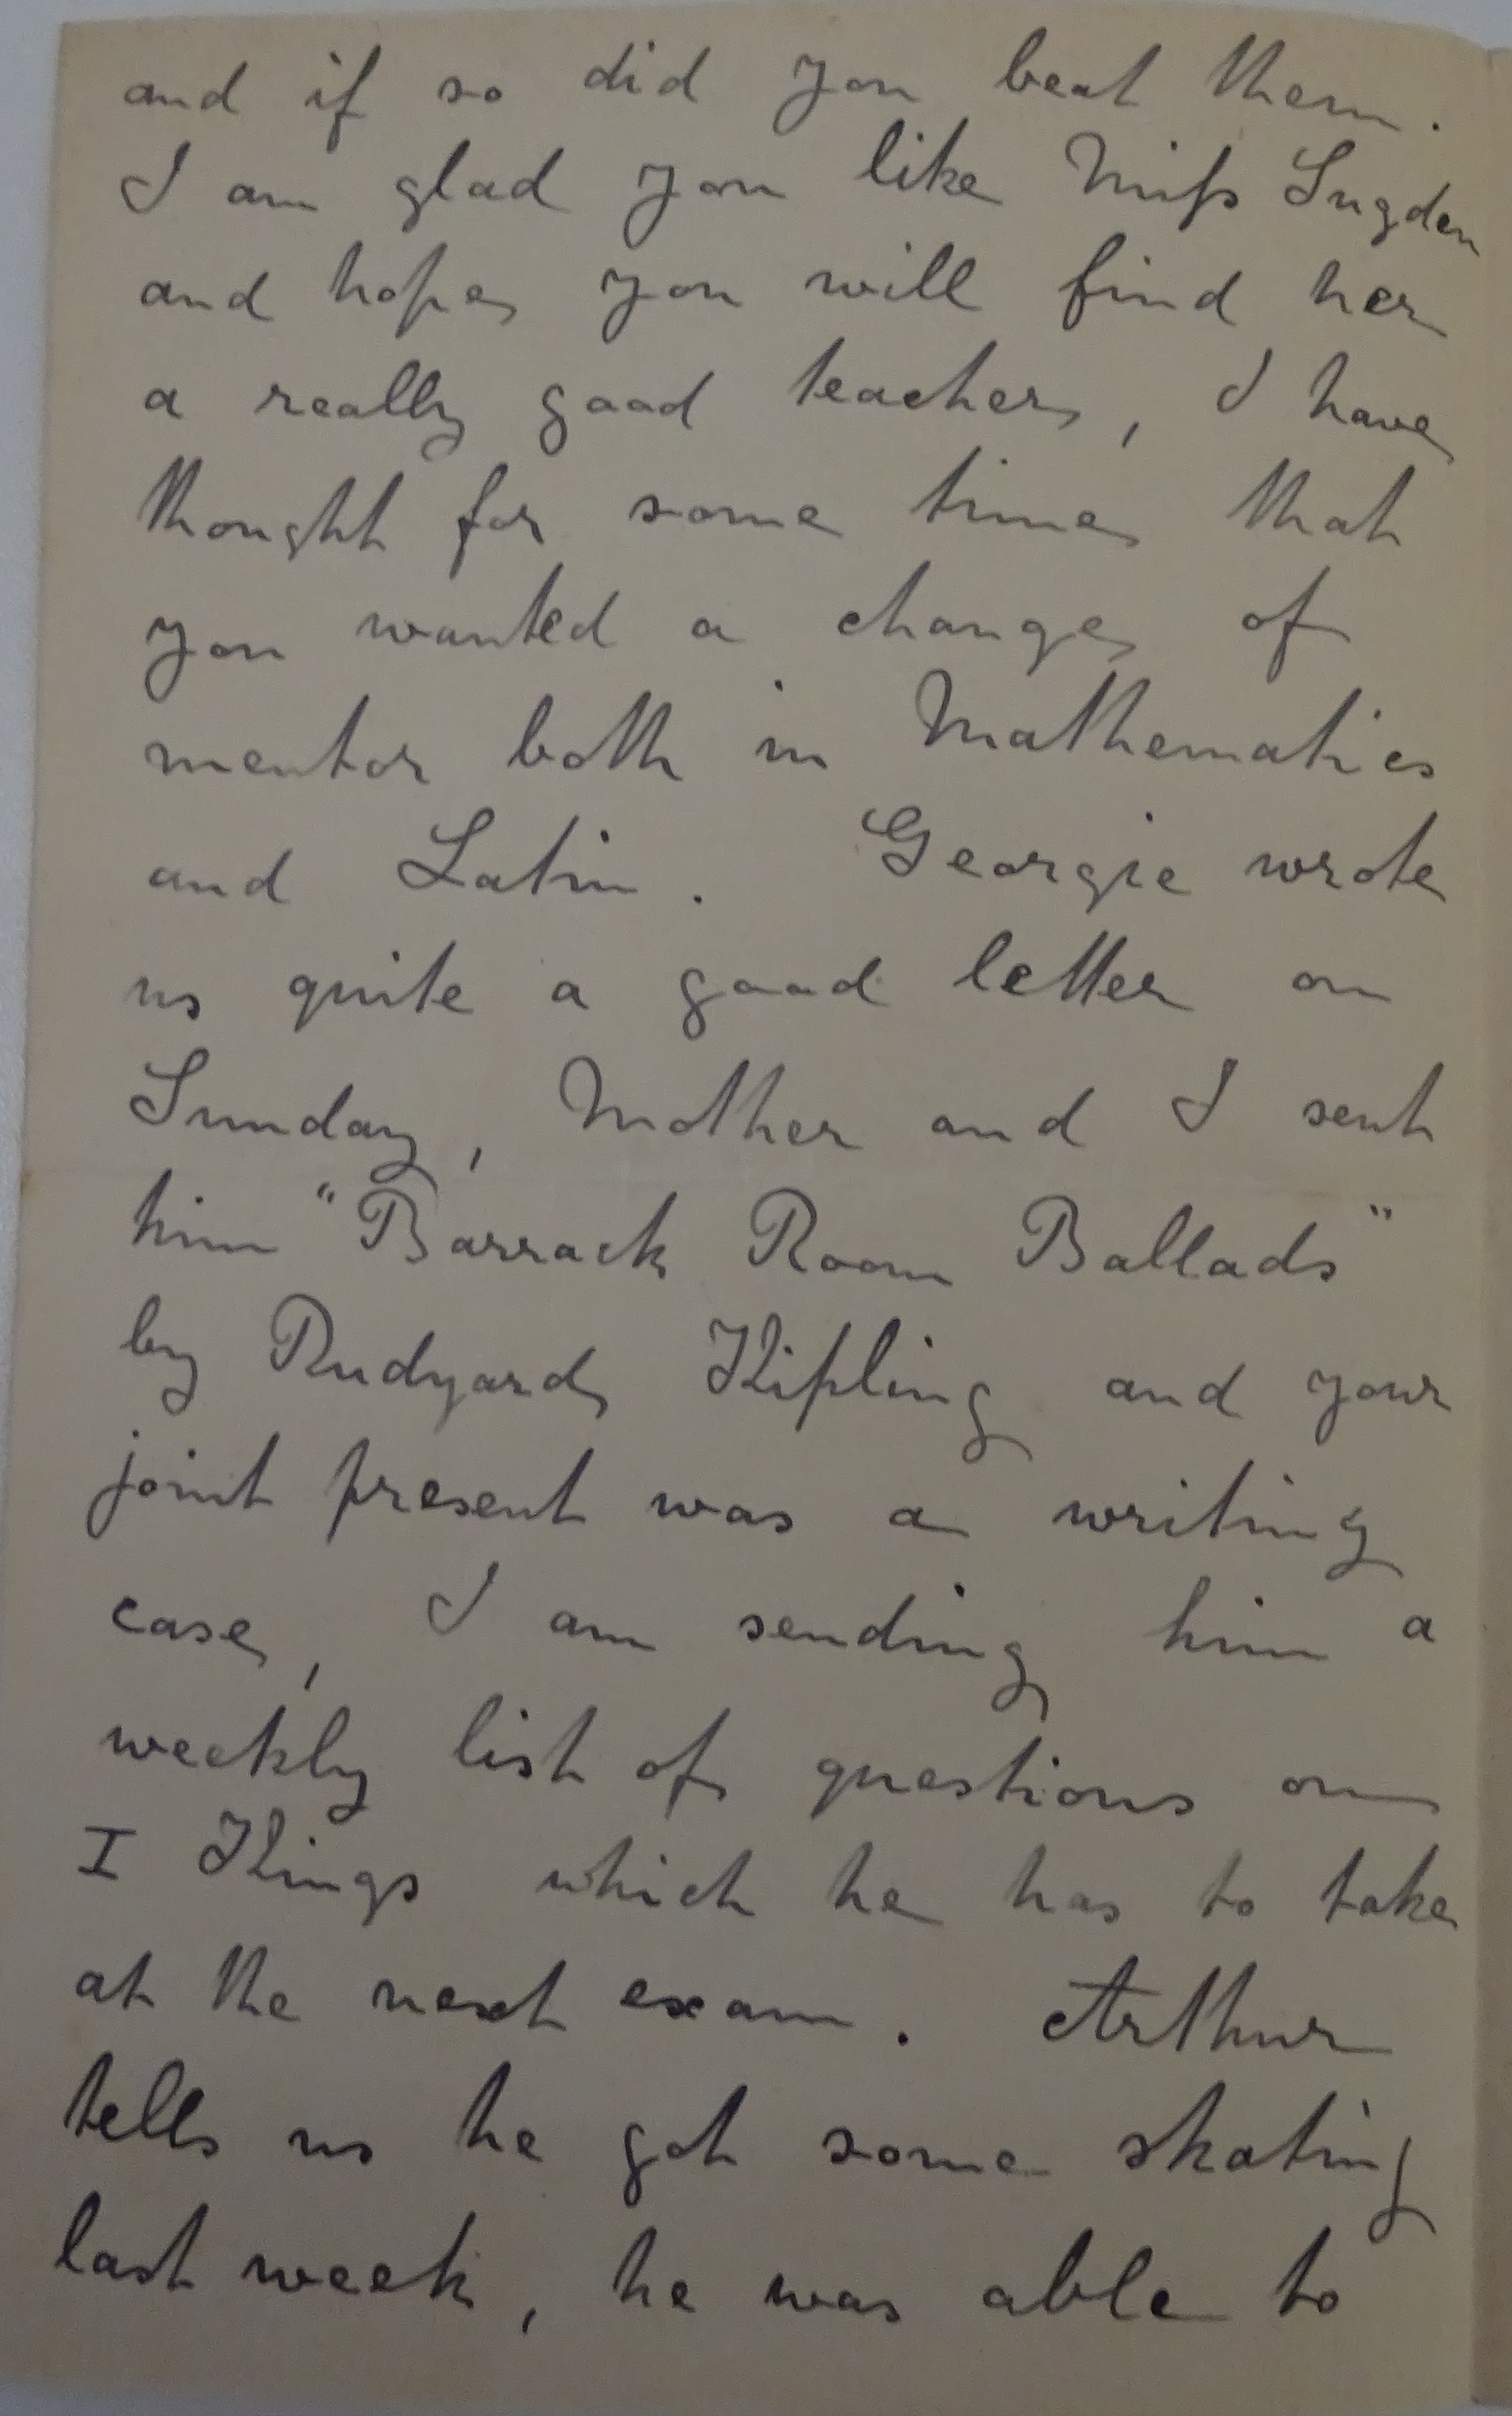 and if so did you beat them.
I am glad you like Miss Sugden
and hope you will find her
a really good teacher, I have
thought for some time that
you wanted a change of
mentor both in Mathematics
and Latin. Georgie wrote
us quite a good letter on
Sunday, Mother and I sent
him "Barrack Room Ballads"
by Rudyard Kipling and your
joint present was a writing
case, I am sending him a
weekly list of questions on
I Kings which he has to take
at the next exam. Arthur
tells us he got some skating
last week, he was able to